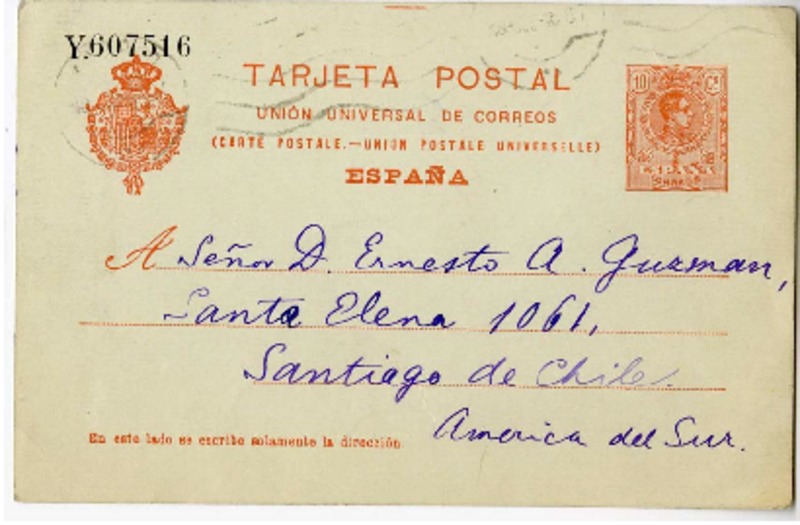 Y.607516
TARJETA POSTAL
UNIÓN UNIVERSAL DE CORREOS
(CARTE POSTALE.—UNION POSTALE UNIVERSELLE)
ESPAÑA
10 Cs
A Señor D. Ernesto A. Guzman,
Santa Elena 1061,
Santiago de Chile.
America del Sur.
En este lado se escribe solamente la dirección.